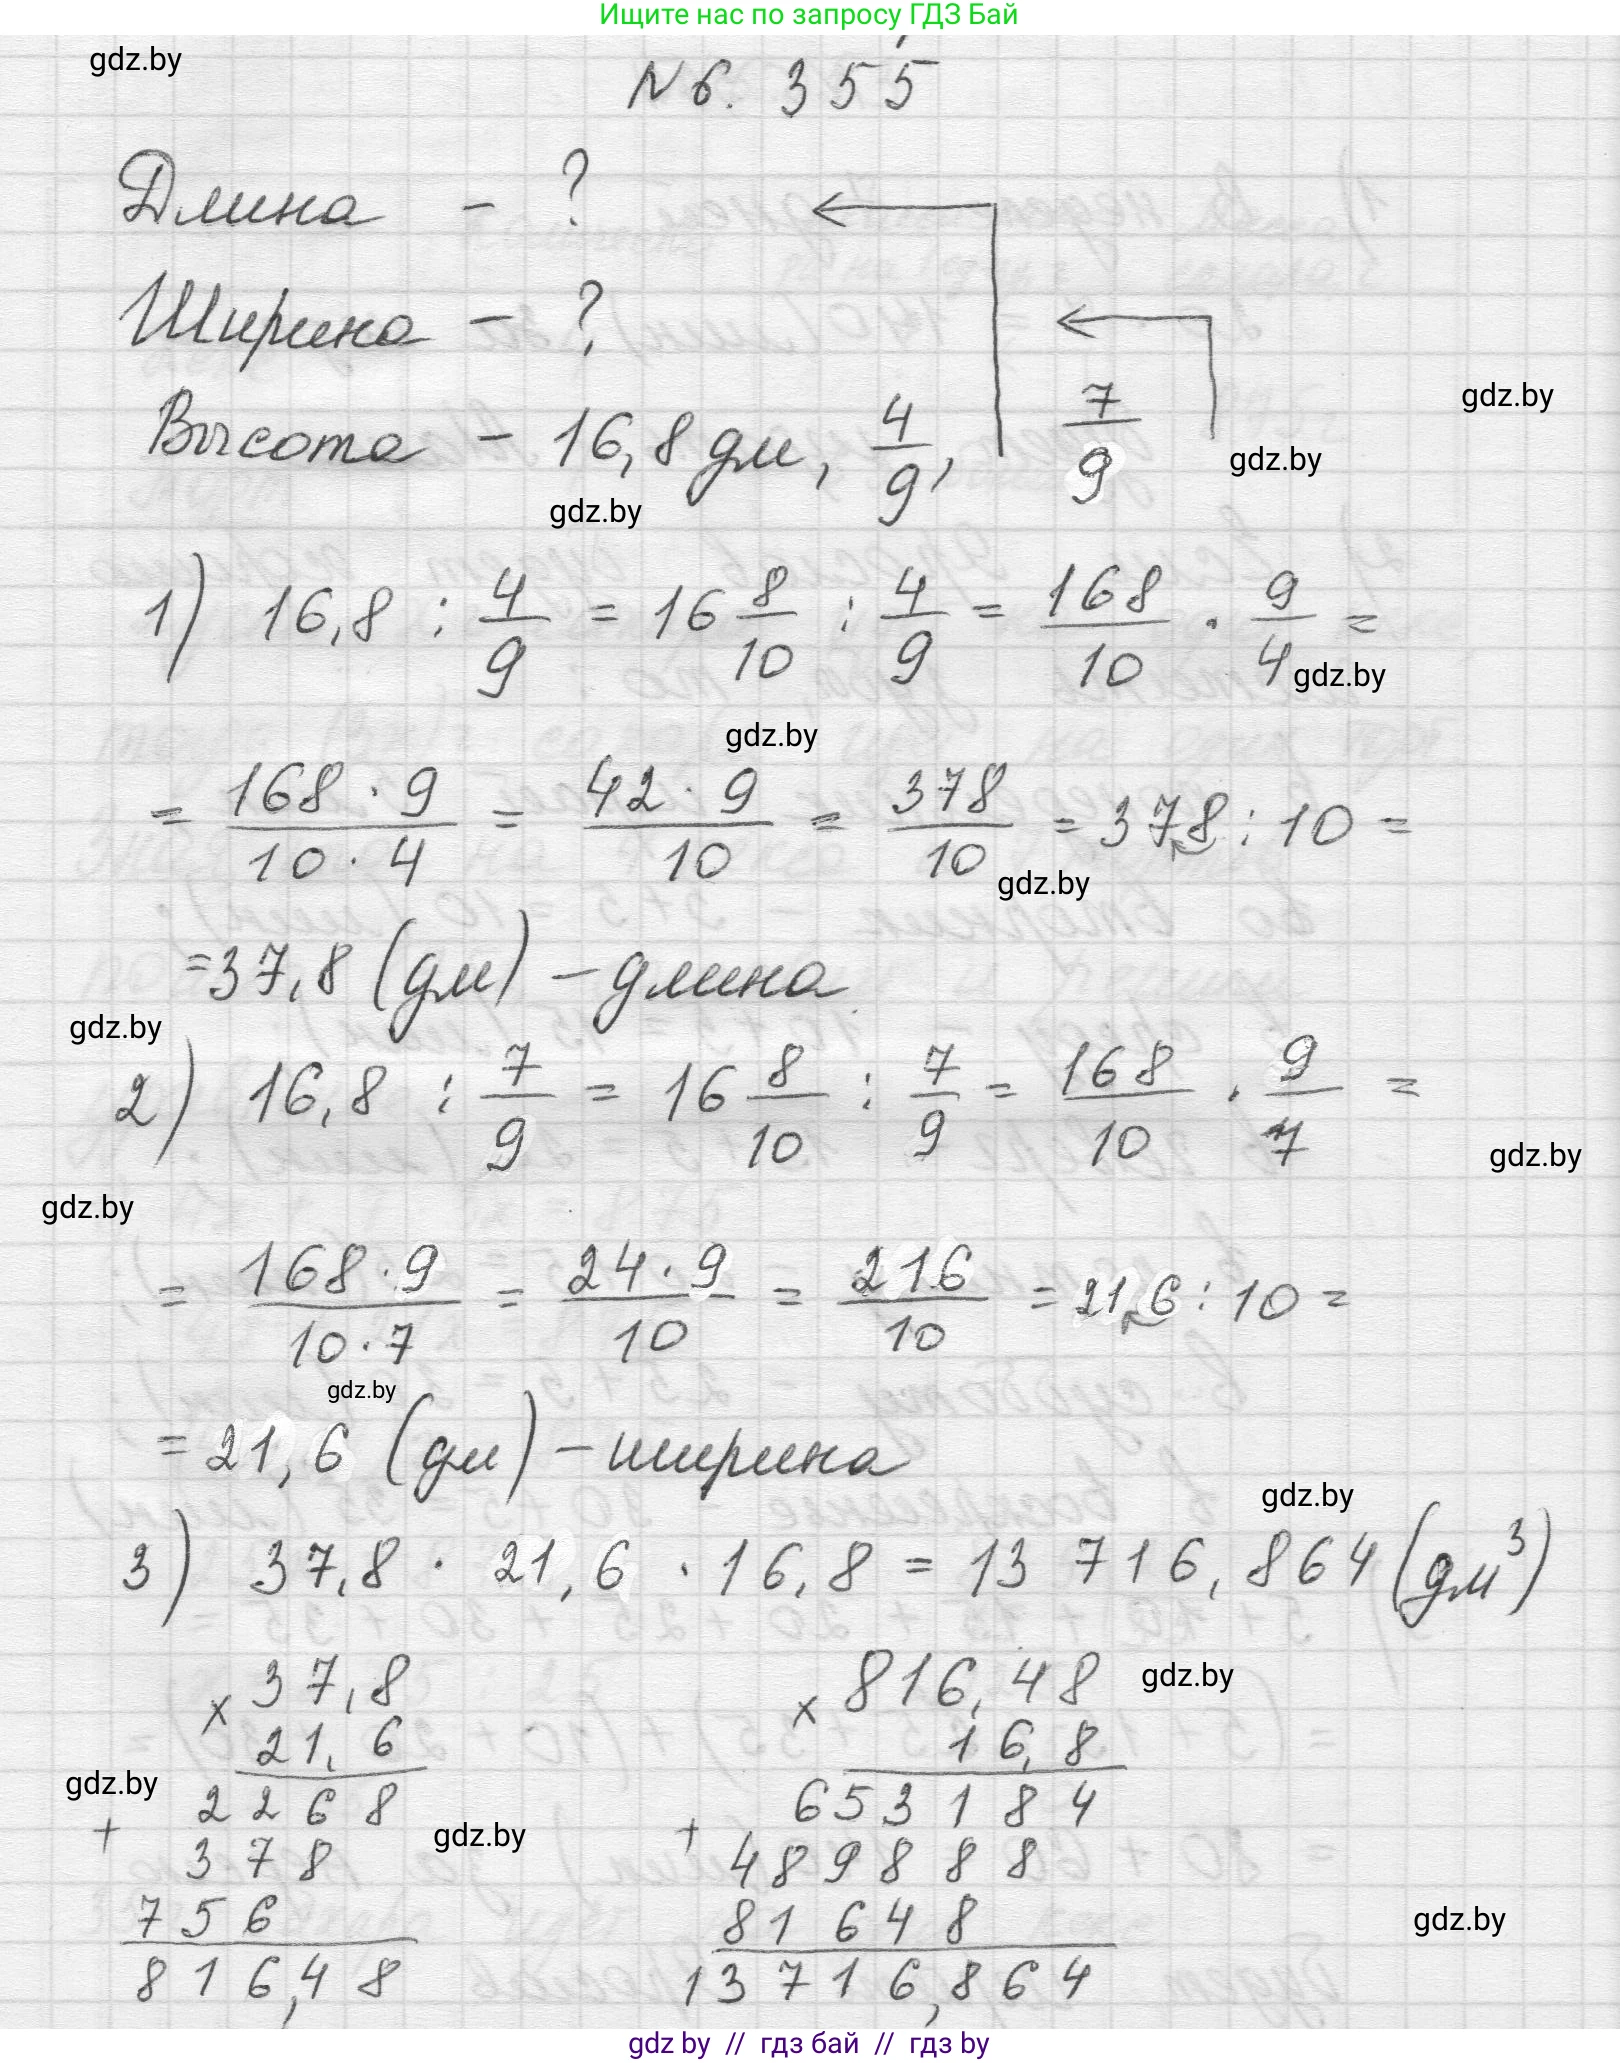 Ищите нас по запросу ГДЗ Бай
gdz.by
№ 6. 355
Длина - ?
Ширина - ?
gdz.by
Высота - 16,8 дм, 4/9, 7/9
gdz.by
gdz.by
1) 16,8 : 4/9 = 16 8/10 : 4/9 = 168/10 · 9/4 =
gdz.by
gdz.by
= 168 · 9/10 · 4 = 42 · 9/10 = 378/10 = 378 : 10 =
gdz.by
= 37,8 (дм) – длина
gdz.by
2) 16,8 : 7/9 = 16 8/10 : 7/9 = 168/10 · 9/7 =
gdz.by
gdz.by
= 168 · 9/10 · 7 = 24 · 9/10 = 216/10 = 216 : 10 =
gdz.by
= 21,6 (дм) – ширина
gdz.by
3) 37,8 · 21,6 · 16,8 = 13 716,864 (дм³)
× 37,8
21,6
2268
+ 378
756
816,48
× 816,48
16,8
653184
+ 489888
81648
13716,864
gdz.by
gdz.by
gdz.by
gdz.by
gdz by // гдз бай // гдз by